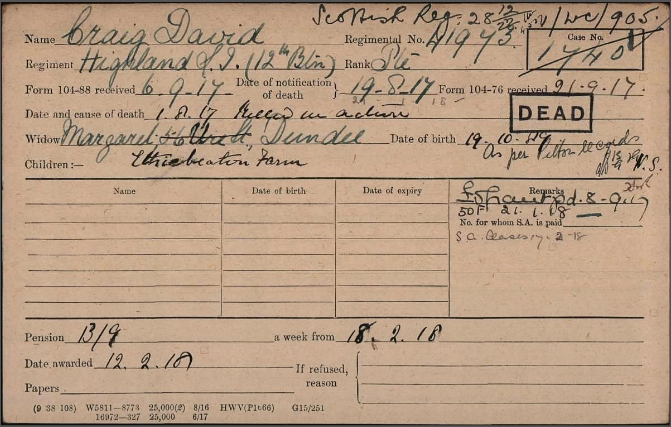 Scottish Reg. 28 /WC/905.
Name Craig David Regimental No. 41973 Case No.
Regiment Highland L.I. (12th Btn) Rank Pte 1740
Form 104-88 received 6.9.17 Date of notification of death } 19-8-17 Form 104-76 received 21.9.17.
Date and cause of death 1.8.17 Killed in action DEAD
Widow Margaret Dundee Date of birth 19.10.49
As per Pelton records
Children :— Farm N.S.
Name Date of birth Date of expiry Remarks
£5 pd. 8-9-17
50F 21.1.18
No. for whom S.A. is paid
S.A. Ceases 17.2-18
Pension 13/9 a week from 18.2.18
Date awarded 12.2.18 If refused,
Papers reason
(9 38 108) W5811—8773 25,000(2) 8/16 HWV(P1566) G15/251
16972—327 25,000 6/17